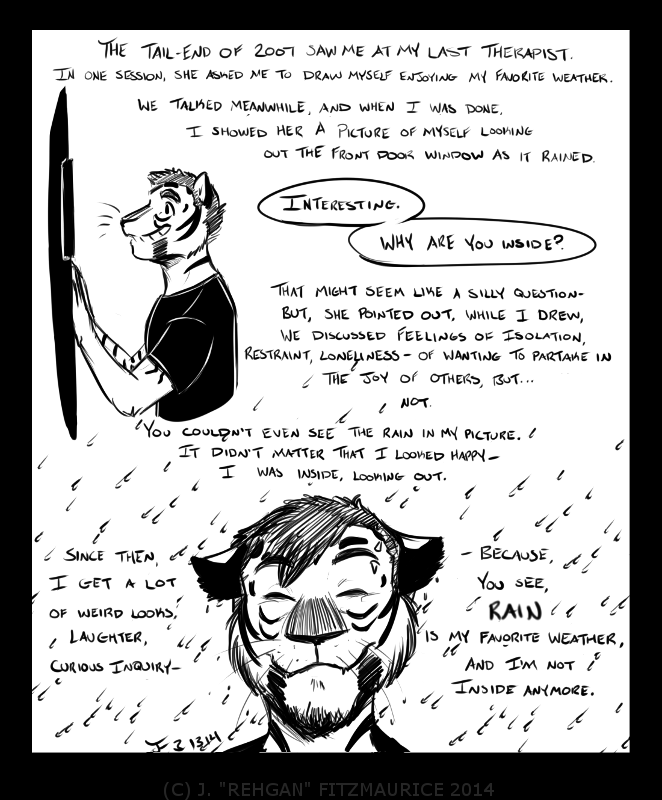 THE TAIL-END OF 2007 SAW ME AT MY LAST THERAPIST.
IN ONE SESSION, SHE ASKED ME TO DRAW MYSELF ENJOYING MY FAVORITE WEATHER.
WE TALKED MEANWHILE, AND WHEN I WAS DONE,
I SHOWED HER A PICTURE OF MYSELF LOOKING
OUT THE FRONT DOOR WINDOW AS IT RAINED.
INTERESTING.
WHY ARE YOU INSIDE?
THAT MIGHT SEEM LIKE A SILLY QUESTION-
BUT, SHE POINTED OUT, WHILE I DREW,
WE DISCUSSED FEELINGS OF ISOLATION,
RESTRAINT, LONELINESS - OF WANTING TO PARTAKE IN
THE JOY OF OTHERS, BUT...
NOT.
YOU COULDN'T EVEN SEE THE RAIN IN MY PICTURE.
IT DIDN'T MATTER THAT I LOOKED HAPPY-
I WAS INSIDE, LOOKING OUT.
SINCE THEN,
I GET A LOT
OF WEIRD LOOKS,
LAUGHTER,
CURIOUS INQUIRY-
- BECAUSE,
YOU SEE,
RAIN
IS MY FAVORITE WEATHER,
AND I'M NOT
INSIDE ANYMORE.
(C) J. "REHGAN" FITZMAURICE 2014